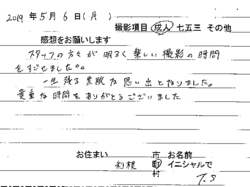 2019年5月6日(月)
撮影項目 成人 七五三 その他
感想をお願いします
スタッフの方々が明るく楽しい撮影の時間
をすごせました。
一生残る素敵な思い出となりました。
貴重な時間をありがとうございました
お住まい 市 お名前
利根 郡 イニシャルで
村 T.S